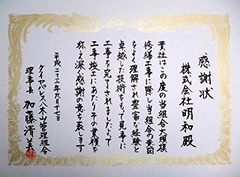 感謝状
株式会社 明和 殿
貴社はこの度の当組合大規模
修繕工事に際し当組合の意図を
よく理解され豊富な経験と
卓越した技術をもって見事に
工事を完了されました
工事竣工にあたりその業績を
称え深く感謝の意を表します
平成二十三年九月十一日
管理組合
理事長 加藤清美